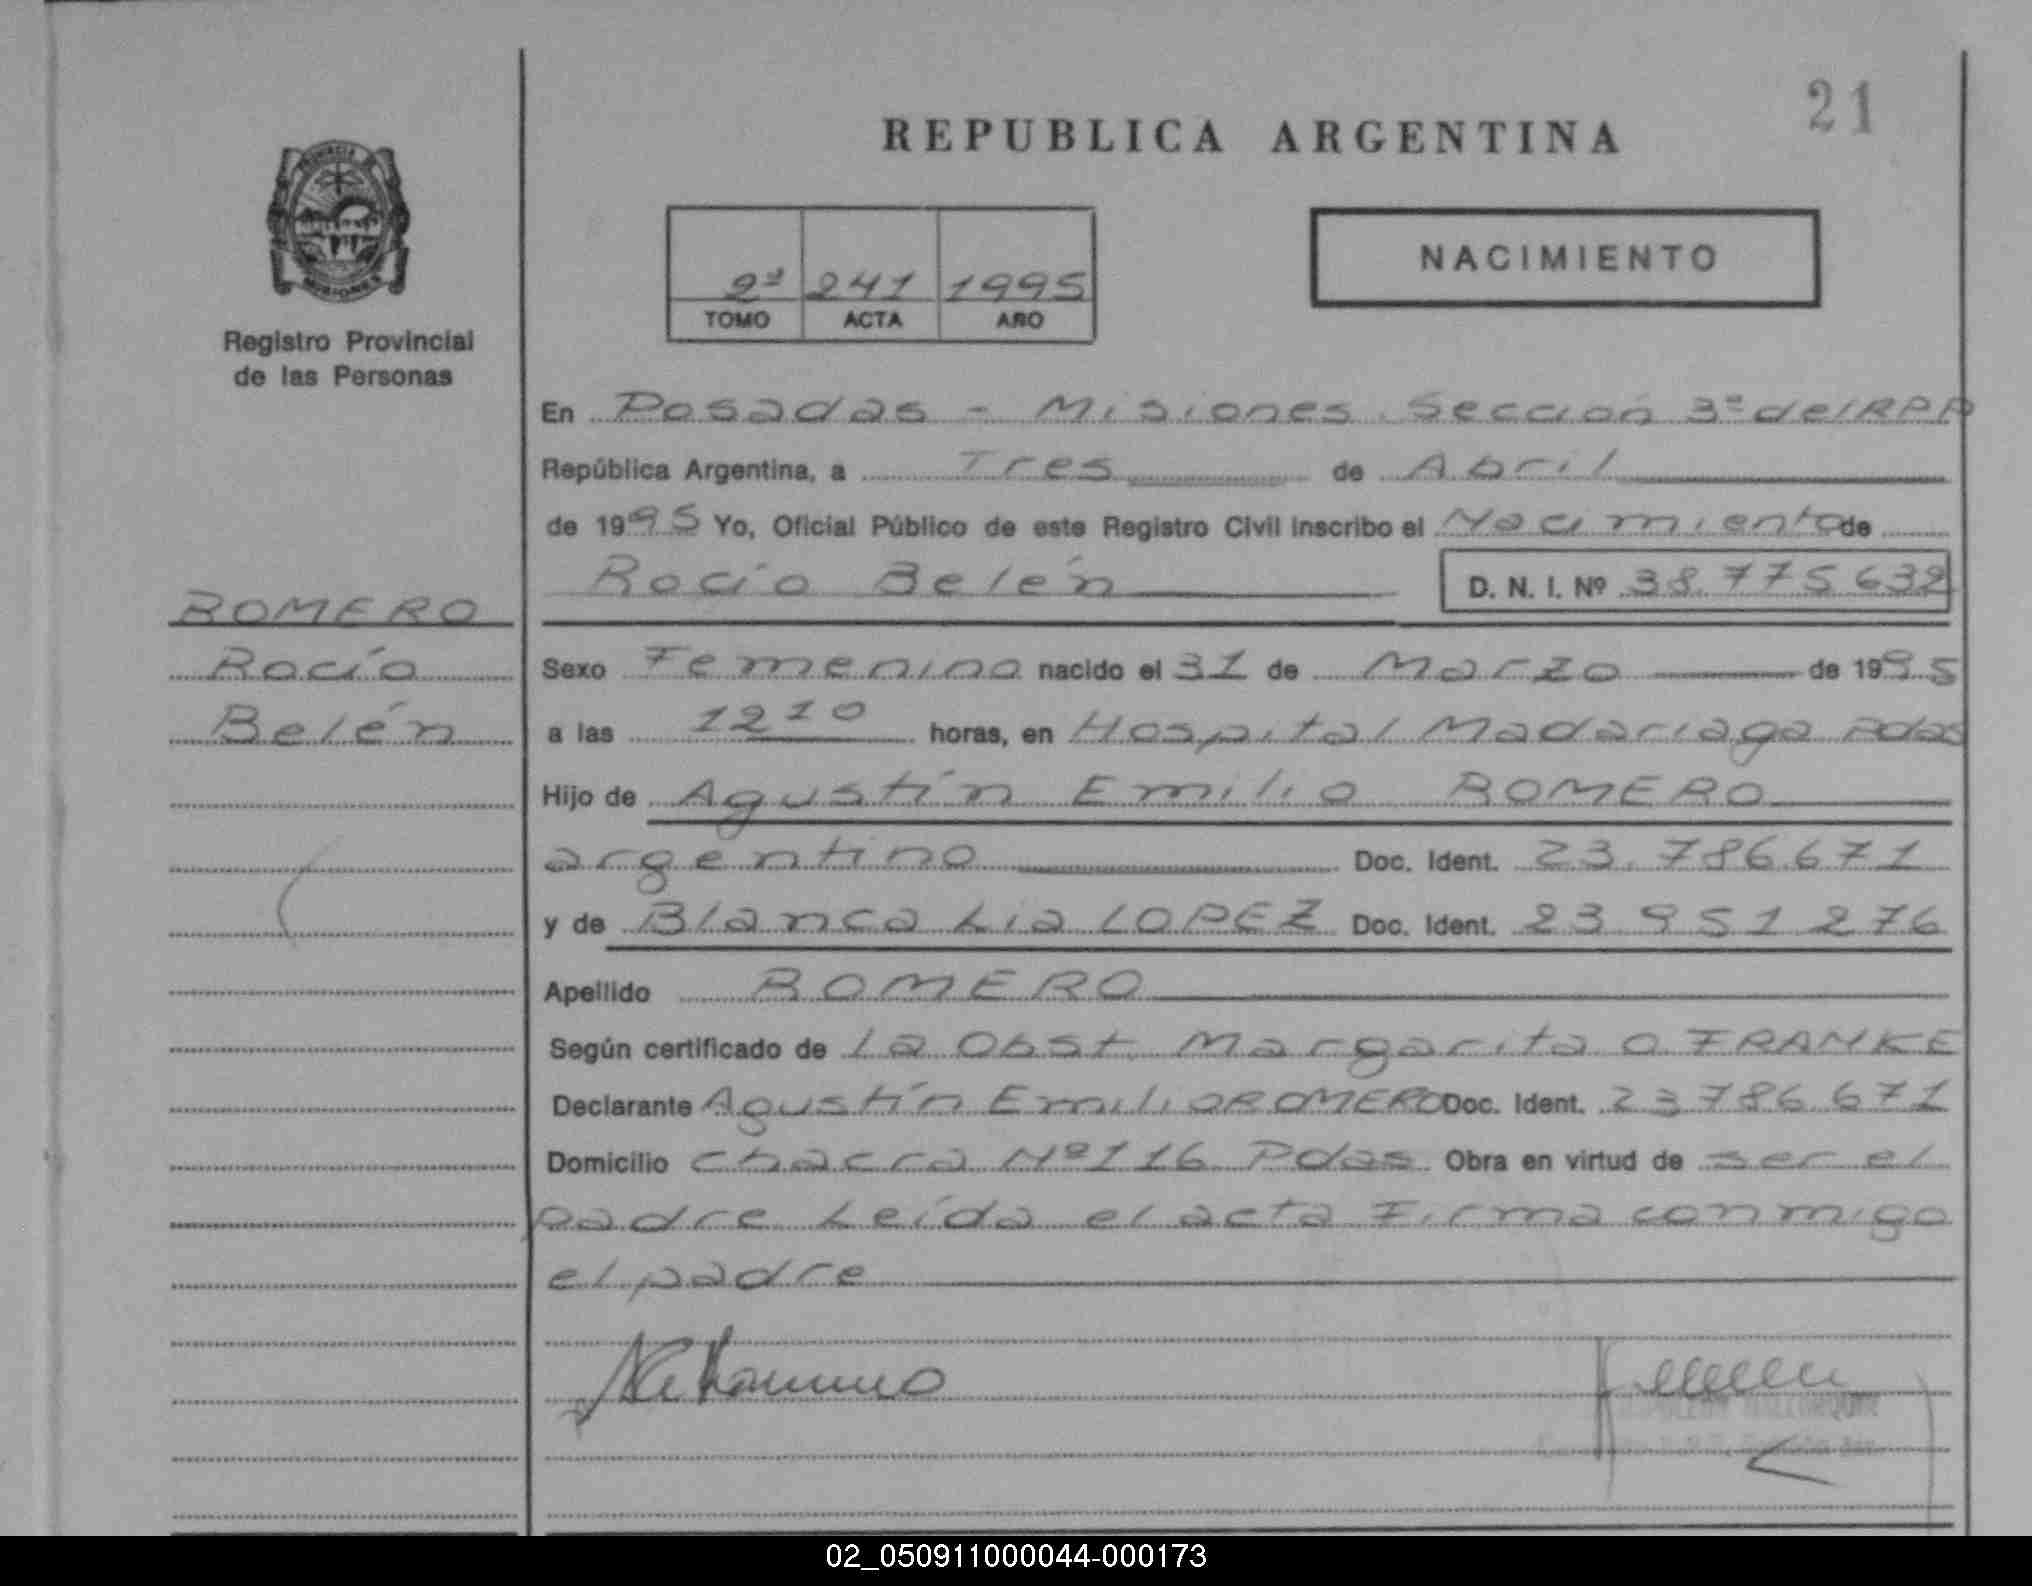 21
REPUBLICA ARGENTINA
PROVINCIA DE
MISIONES
Registro Provincial
de las Personas
2º 241 1995
TOMO ACTA AÑO
NACIMIENTO
En Posadas - Misiones. Sección 3ª del RPP
República Argentina, a Tres de Abril
de 1995 Yo, Oficial Público de este Registro Civil inscribo el Nacimiento de
Rocío Belén D. N. I. Nº 38.775.632
ROMERO
Rocío
Belén
Sexo Femenino nacido el 31 de Marzo de 1995
a las 12 10 horas, en Hospital Madariaga Pdas
Hijo de Agustín Emilio ROMERO
argentino Doc. Ident. 23.786.671
y de Blanca Lia LOPEZ Doc. Ident. 23 951 276
Apellido ROMERO
Según certificado de la Obst. Margarita O FRANKE
Declarante Agustín Emilio ROMERO Doc. Ident. 23 786 671
Domicilio chacra Nº 116 Pdas Obra en virtud de ser el
padre Leída el acta Firma conmigo
el padre
02_050911000044-000173